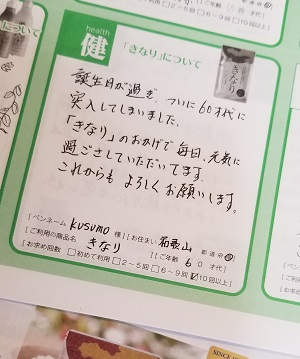 について
□6～9回□10回以上]
health
健
「きなり」について
きなり
誕生日が過ぎ ついに60才代に
突入してしまいました。
「きなり」のおかげで毎日、元気に
過ごさせていただいてます。
これからも よろしくお願いします。
[ペンネーム kusumo 様][お住まい 和歌山 都道府県]
[ご利用の商品名 きなり ][ご年齢 60 才代]
[お求め回数 □初めて利用□2～5回□6～9回☑10回以上]
について
SINCE